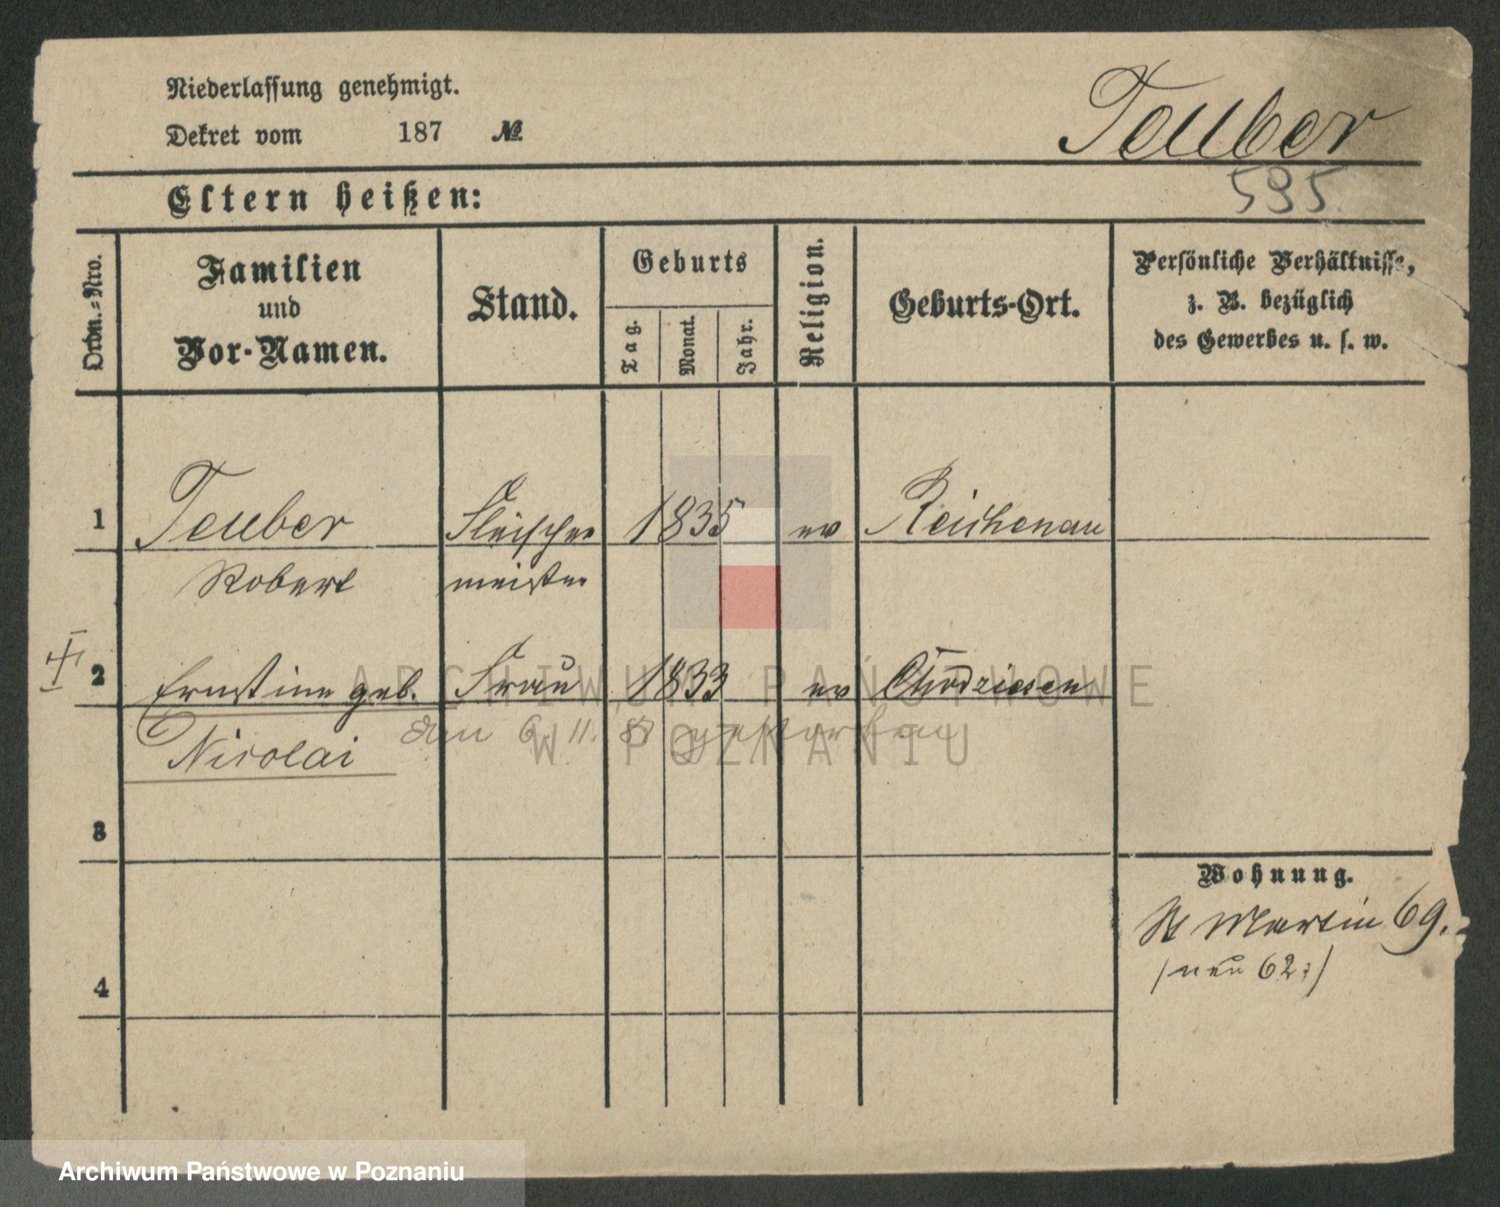 Niederlassung genehmigt.
Dekret vom 187 №
Teuber
595
Eltern heißen:
Ordn.-Nro.
Familien und Vor-Namen.
Stand.
Geburts
Tag.
Monat.
Jahr.
Religion.
Geburts-Ort.
Persönliche Verhältnisse, z. B. bezüglich des Gewerbes u. s. w.
1 Teuber Fleischer 1835 ev Reichenau
Robert meister
2 Ernstine geb. Frau 1833 ev Chodziesen
den 6. 11. gestorben
Nicolai
3
Wohnung.
St Martin 69.
/neu 62:/
4
ARCHIWUM PAŃSTWOWE
W POZNANIU
Archiwum Państwowe w Poznaniu